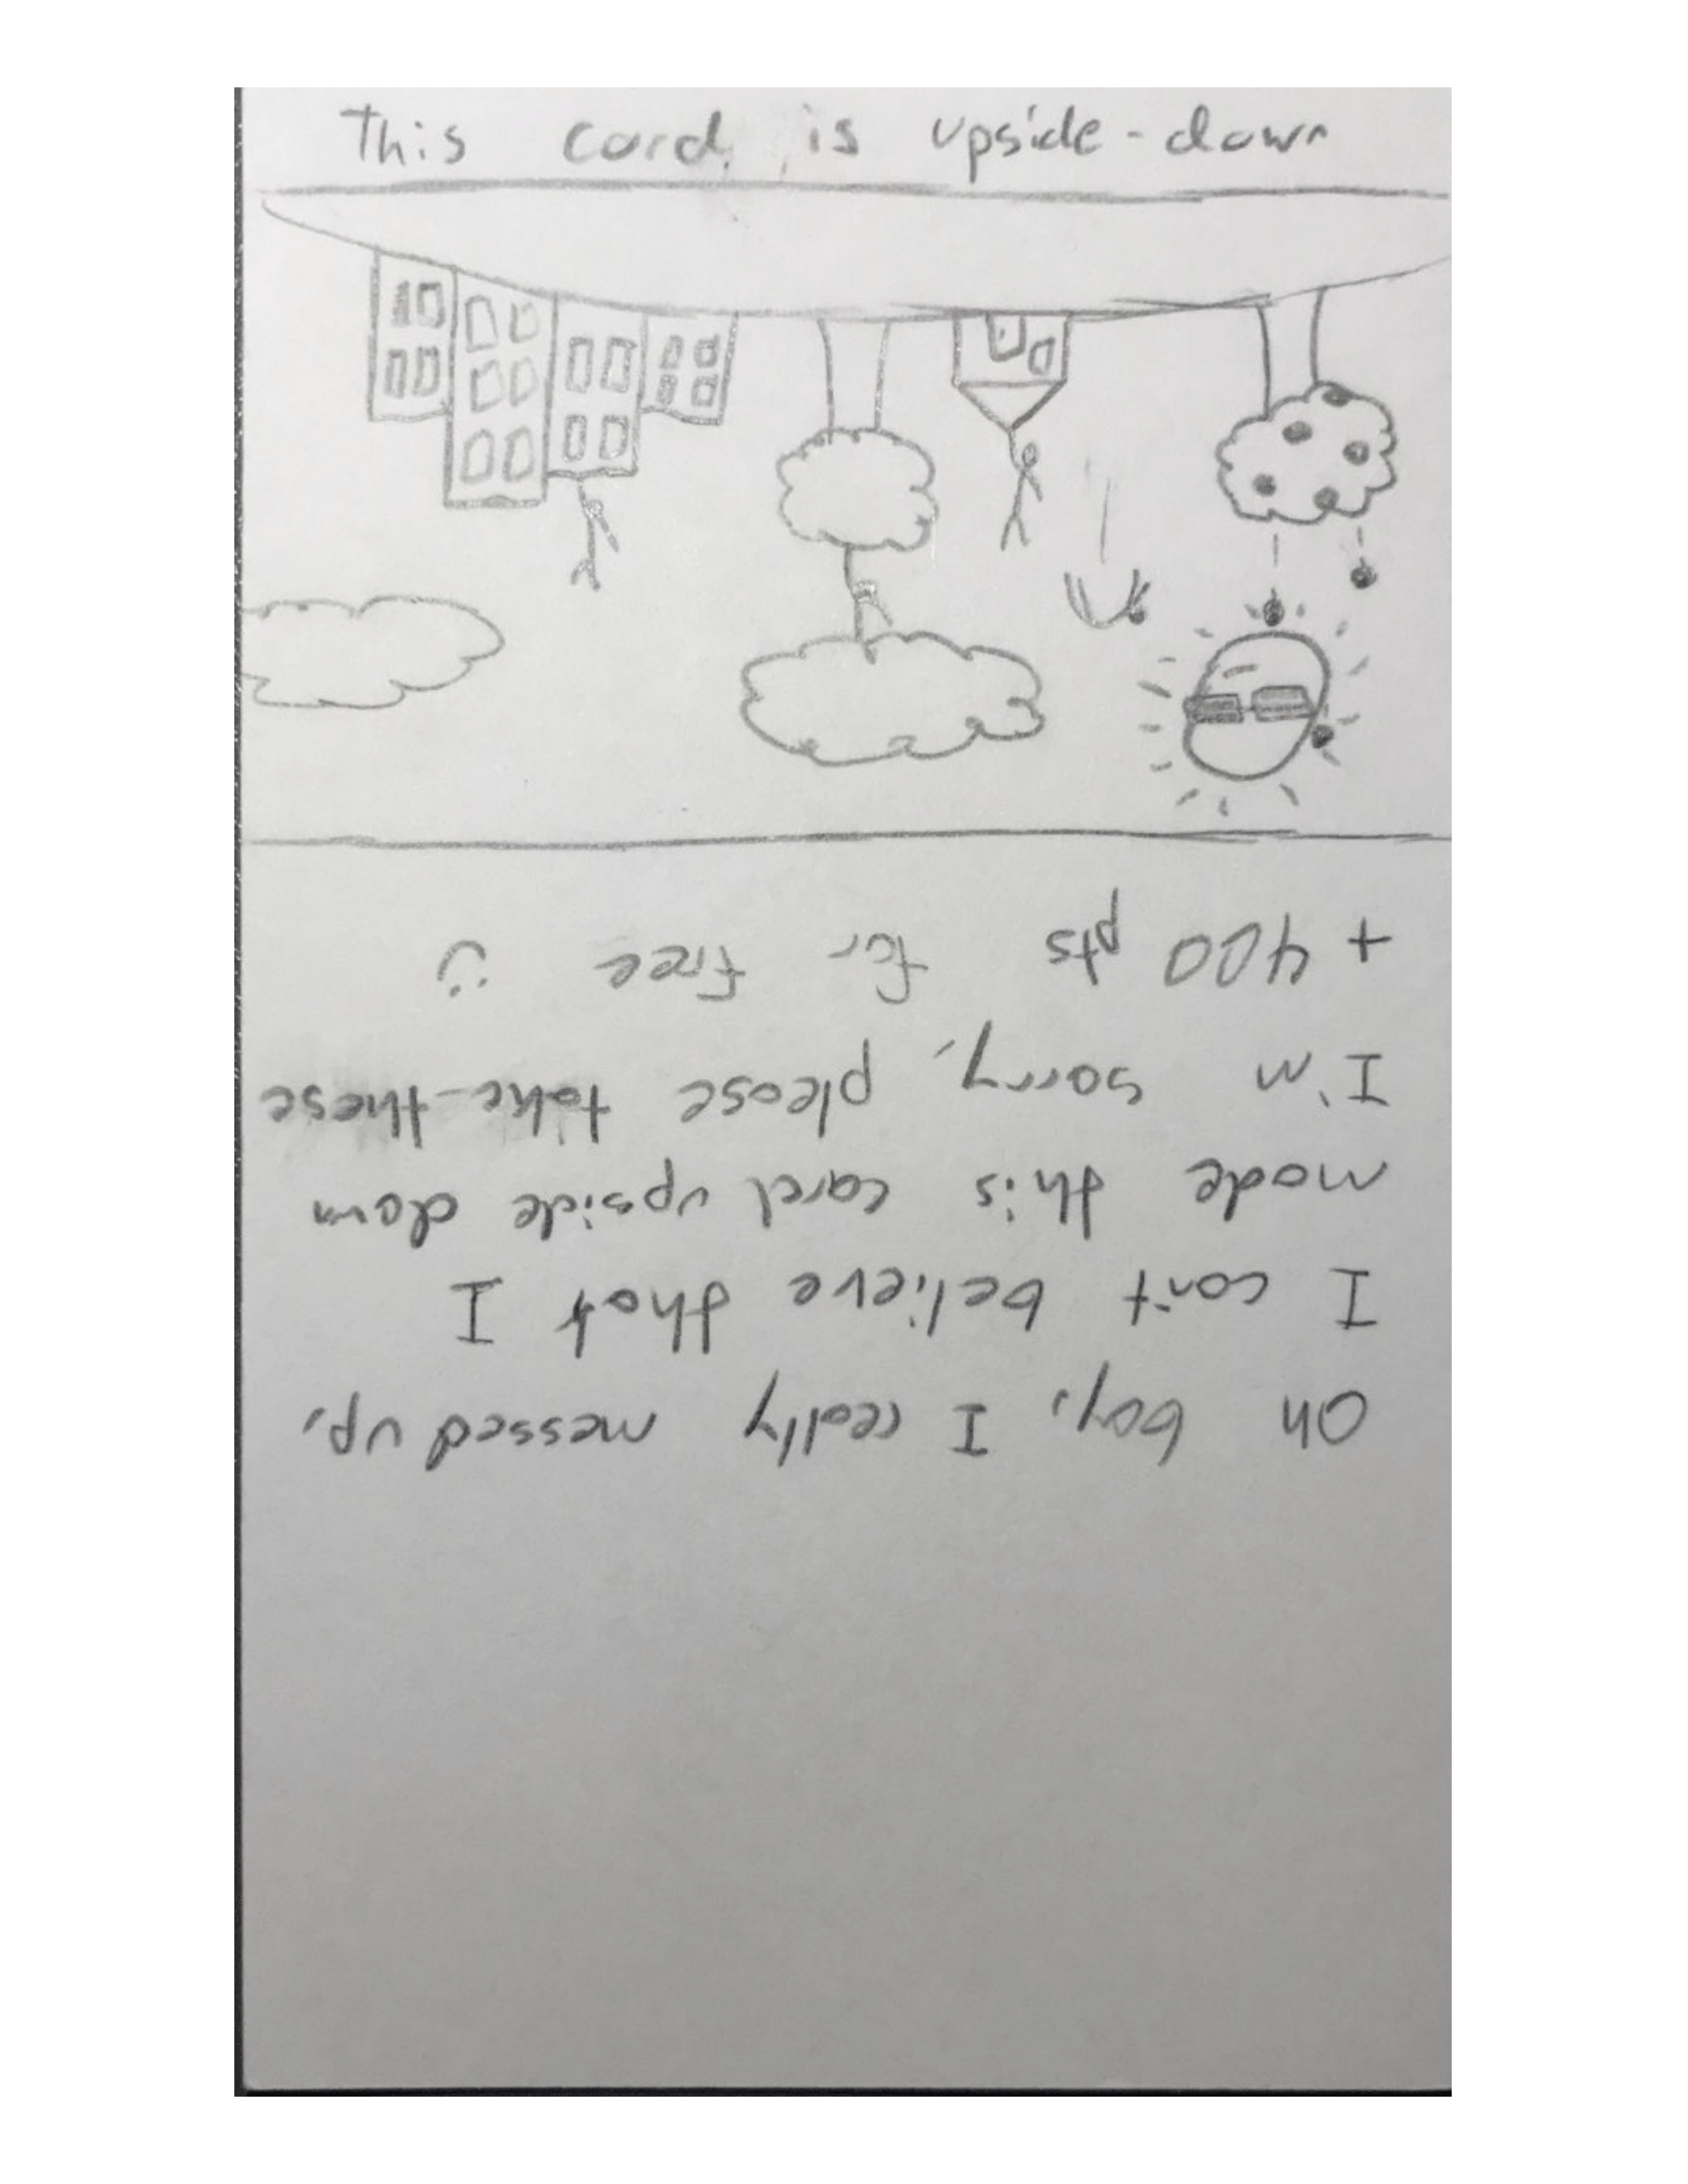 This card is upside-down
Oh boy, I really messed up,
I can't believe that I
made this card upside down
I'm sorry, please take these
+ 400 pts for free :)